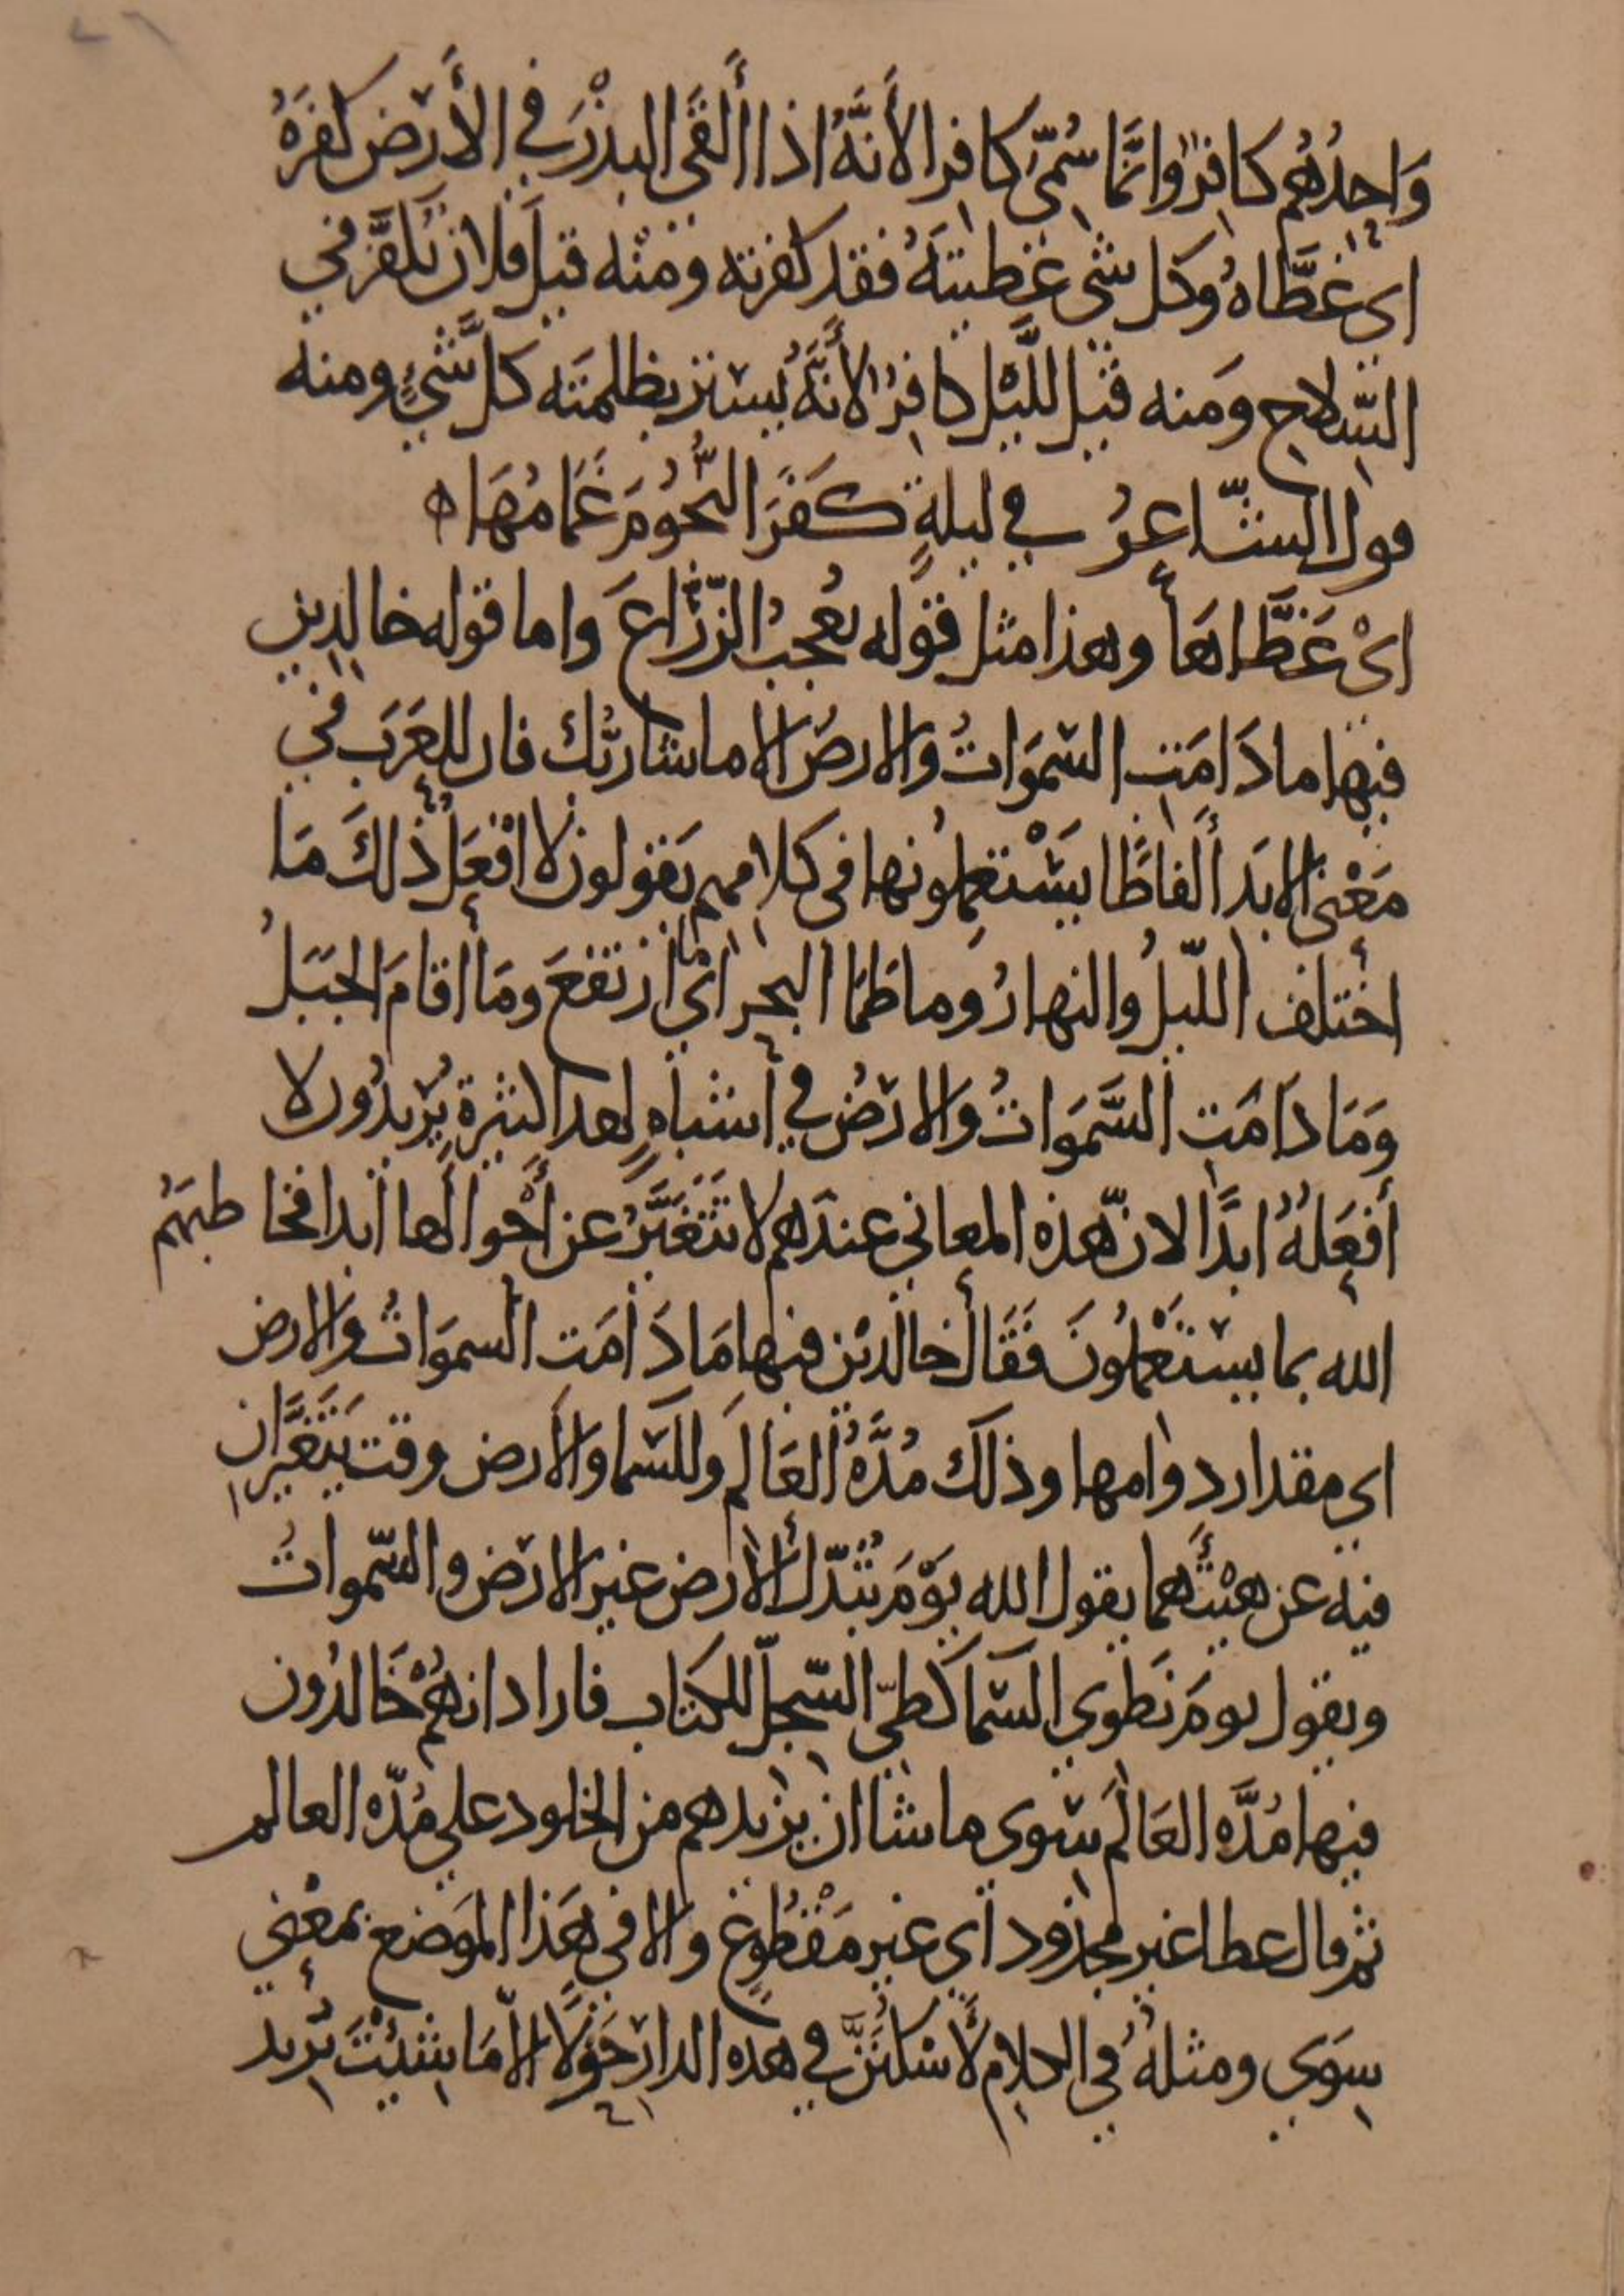 وَاحِدُهُم كافِرٌ وانَّما سُمِّيَ كافرا لأَنَّهُ اذا أَلقَى البذْرَ في الأَرْض كفَرَهُ
اي غطَّاهُ وكل شي غطيتَهُ فقد كفرته ومنْه قيلَ فلان تَكفَّر في
السِّلاح ومَنه قيل للَّيْل كافِرٌ لأَنَّهُ يسْتر بظلمتَه كلَّ شَيْءٍ ومنه
قول الشّاعرُ في ليلةٍ كَفَرَ النُّجُومَ غَمَامُهَا ه
ايْ غَطَّاهَا وهذا مثل قوله يُعْجِبُ الزُّرّاعَ واما قوله خالدِين
فيها ما دَامَتِ السّموَاتُ والارضُ الا ما شا ربُّك فان للعَرَب في
مَعْنى الابَد أَلفاظًا يَسْتعمِلُونها في كلامهم يَقولون لا افْعَلُ ذلكَ مَا
اختلف اللّيلُ والنهارُ وما طمَا البحر ايْ ارتفعَ ومَا اقامَ الجَبَلُ
وَمَا دَامَتِ السَّموَاتُ والارْضُ في أشباهٍ لهذا كثيرةٍ يُرْيدُون لا
أفعَلهُ ابدًا لان هَذه المعاني عندَهم لا تَتَغَيَّرُ عن أَحْوالها أبدا فخاطبَهُم
الله بما يسْتَعْملُونَ فَقَال خالدين فيها مَا دَامَتِ السموَاتُ والارض
اي مقدار دوامها وذلك مُدَّةُ العَالم وللسَّما والأرض وقت يَتَغَيَّران
فيه عن هيْئتهما يقول الله يَوْمَ تُبَدّلُ الأرض غير الارْض والسّمواتُ
ويقول يومَ نَطوي السّما كطيّ السّجِلّ للكتاب فاراد انهُمْ خَالدُون
فيها مُدَّه العَالَم سِوى ما شا ان يزيدهم من الخلود على مُدّه العالم
ثم قال عطا غير مجذود اي غير مَقْطُوعٍ والا في هَذا الموَضع بمعْنى
سِوَي ومثلهُ في الكلام لأَسْكنَنَّ في هذه الدار حَوْلًا الّا مَا شئتَ تُريد